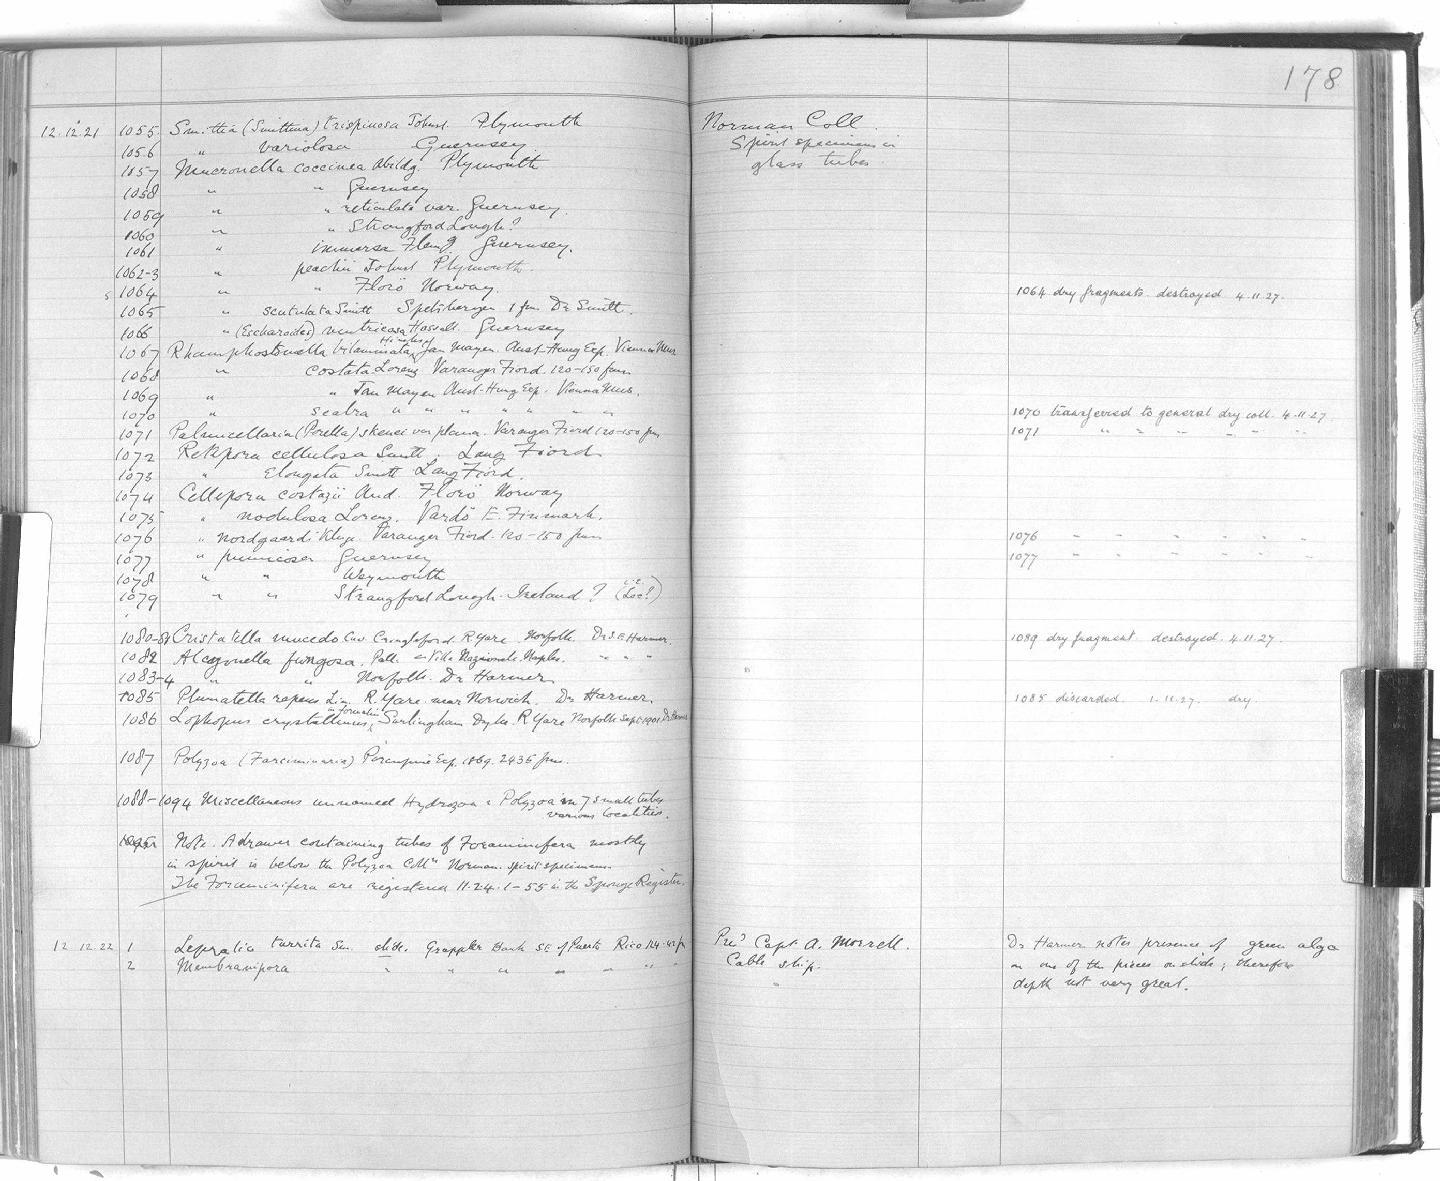 178
12.12.21 1055 Smittia (Smittina) trispinosa Johnst. Plymouth Norman Coll.
1056 " variolosa Guernsey Spirit specimens in
1057 Mucronella coccinea Abildg. Plymouth glass tubes
1058 " " Guernsey
1059 " " reticulata var. Guernsey.
1060 " " Strangford Lough?
1061 " immersa Flemg Guernsey.
1062-3 " peachii Johnst Plymouth.
s 1064 " " Florö Norway. 1064 dry fragments destroyed 4.11.27.
1065 " scutulata Smitt Spetsbergen 1 fm. Dr Smitt.
1066 " (Escharoides) ventricosa Hassall. Guernsey
1067 Rhamphostomella bilaminata Hincks Jan Mayen. Aust-Hung Exp. Vienna Mus
1068 " costata Lorenz Varanger Fiord. 120-150 fms
1069 " " Jan Mayen Aust-Hung Exp. Vienna Mus.
1070 " scabra " " " " " " " 1070 transferred to general dry coll. 4.11.27.
1071 Palmicellaria (Porella) skenei var plana. Varanger Fiord 120-150 fm 1071 " " " " " "
1072 Retepora cellulosa Smitt. Lang Fiord
1073 " Elongata Smitt Lang Fiord.
1074 Cellepora costazii Aud. Florö Norway
1075 " nodulosa Lorenz. Vardö E. Finmark.
1076 " nordgaardi Kluge. Varanger Fiord. 120-150 fms 1076 " " " " " "
1077 " pumicosa Guernsey 1077 " " " " " "
1078 " " Weymouth
1079 " " Strangford Lough. Ireland ? (Loc?)
1080-81 Cristatella mucedo Cuv. Cringleford R Yare. Norfolk. Dr S.F. Harmer. 1089 dry fragment destroyed. 4.11.27.
1082 Alcyonella fungosa. Pall. Villa Nazionale. Naples. " " "
1083-4 " " Norfolk. Dr Harmer
1085 Plumatella repens Lin. R. Yare near Norwich. Dr Harmer. 1085 discarded. 1.11.27. dry
1086 Lophopus crystallinus, in formalin Surlingham Dyke. R Yare Norfolk Sept. 1901 Dr Harmer
1087 Polyzoa (Farciminaria) Porcupine Exp. 1869. 2435 fms.
1088-1094 Miscellaneous unnamed Hydrozoa & Polyzoa in 7 small tubes
various localities.
Note. A drawer containing tubes of Foraminifera mostly
in spirit is below the Polyzoa Colln Norman. spirit specimens.
The Foraminifera are registered 11.24.1-55 in the Sponge Register.
12 12.22 1 Lepralia turrita Sm. slide. Grappler Bank SE of Puerto Rico Pres'd Capt A. Morrell. Dr Harmer notes presence of green alga
2 Membranipora " " " " " " " Cable ship. on one of the pieces on slide; therefore
depth not very great.